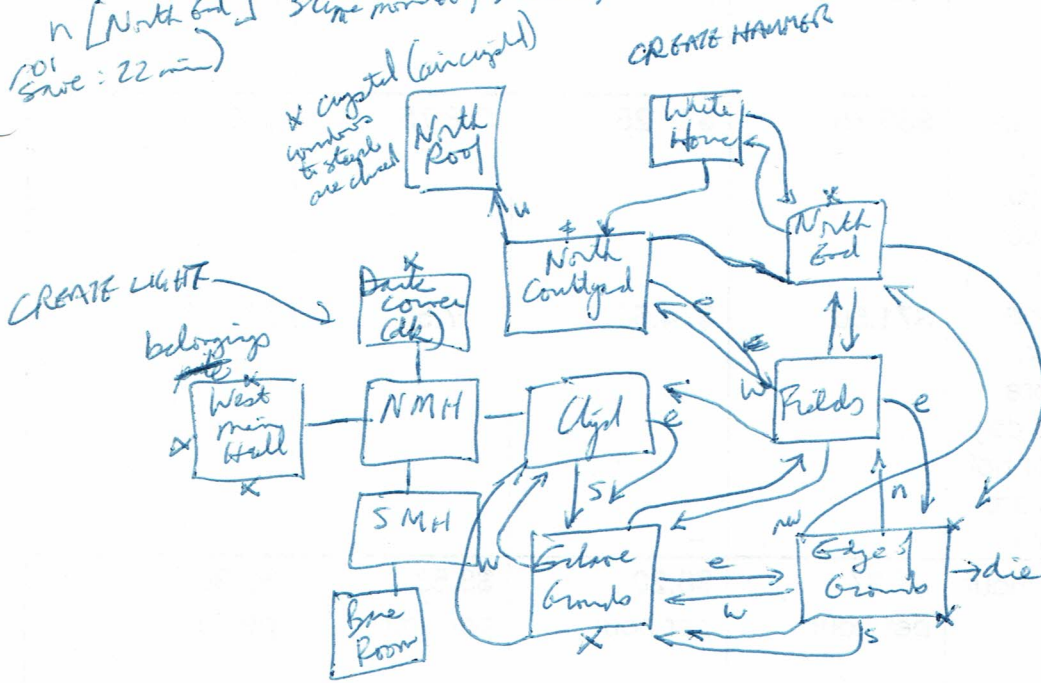 n [North End]
save: 22 min)
CREATE HAMMER
x crystal (air crystal)
windows
to
are closed
North
Roof
White
House
u
North
End
North
Courtyard
CREATE LIGHT
Dark
corner
(dk)
e
w
belongings
West
main
Hall
NMH
Ctyd
e
Fields
e
s
n
SMH
w
nw
Grounds
e
w
Edge of
Grounds
die
s
Bare
Room